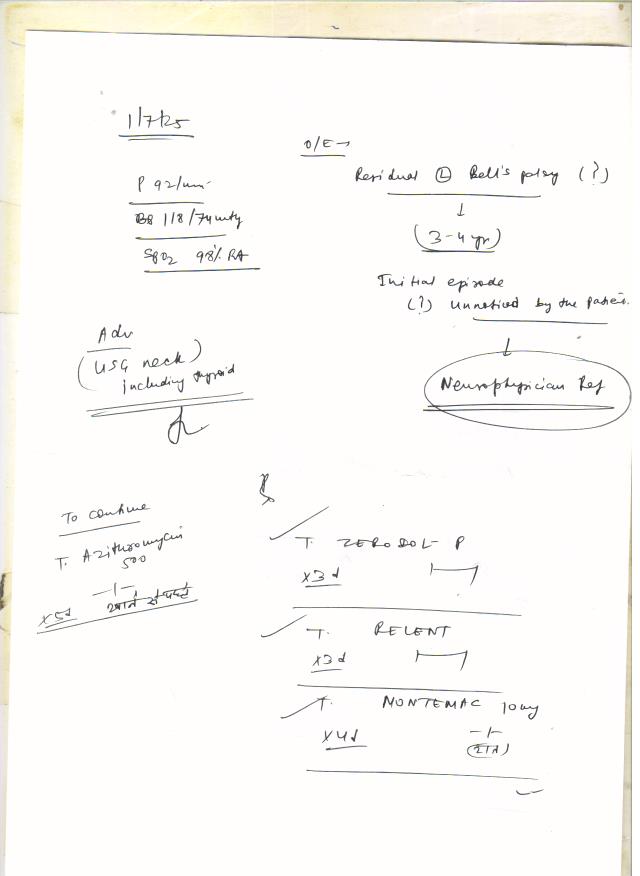 1/7/25
P 92/min
BP 118/74 mmHg
SpO2 98% RA
Adv
(USG neck)
including thyroid
O/E →
Residual Ⓛ Bell's palsy (?)
↓
(3-4 yr)
Initial episode
(?) unnoticed by the patient.
↓
Neurophysician Ref
To continue
T. Azithromycin
500
x5d —1—
खाने से पहले
℞
✓ T. ZERODOL-P
x3d
✓ T. RELENT
x3d
✓ T. MONTEMAC 10mg
x4d —1—
(रात)